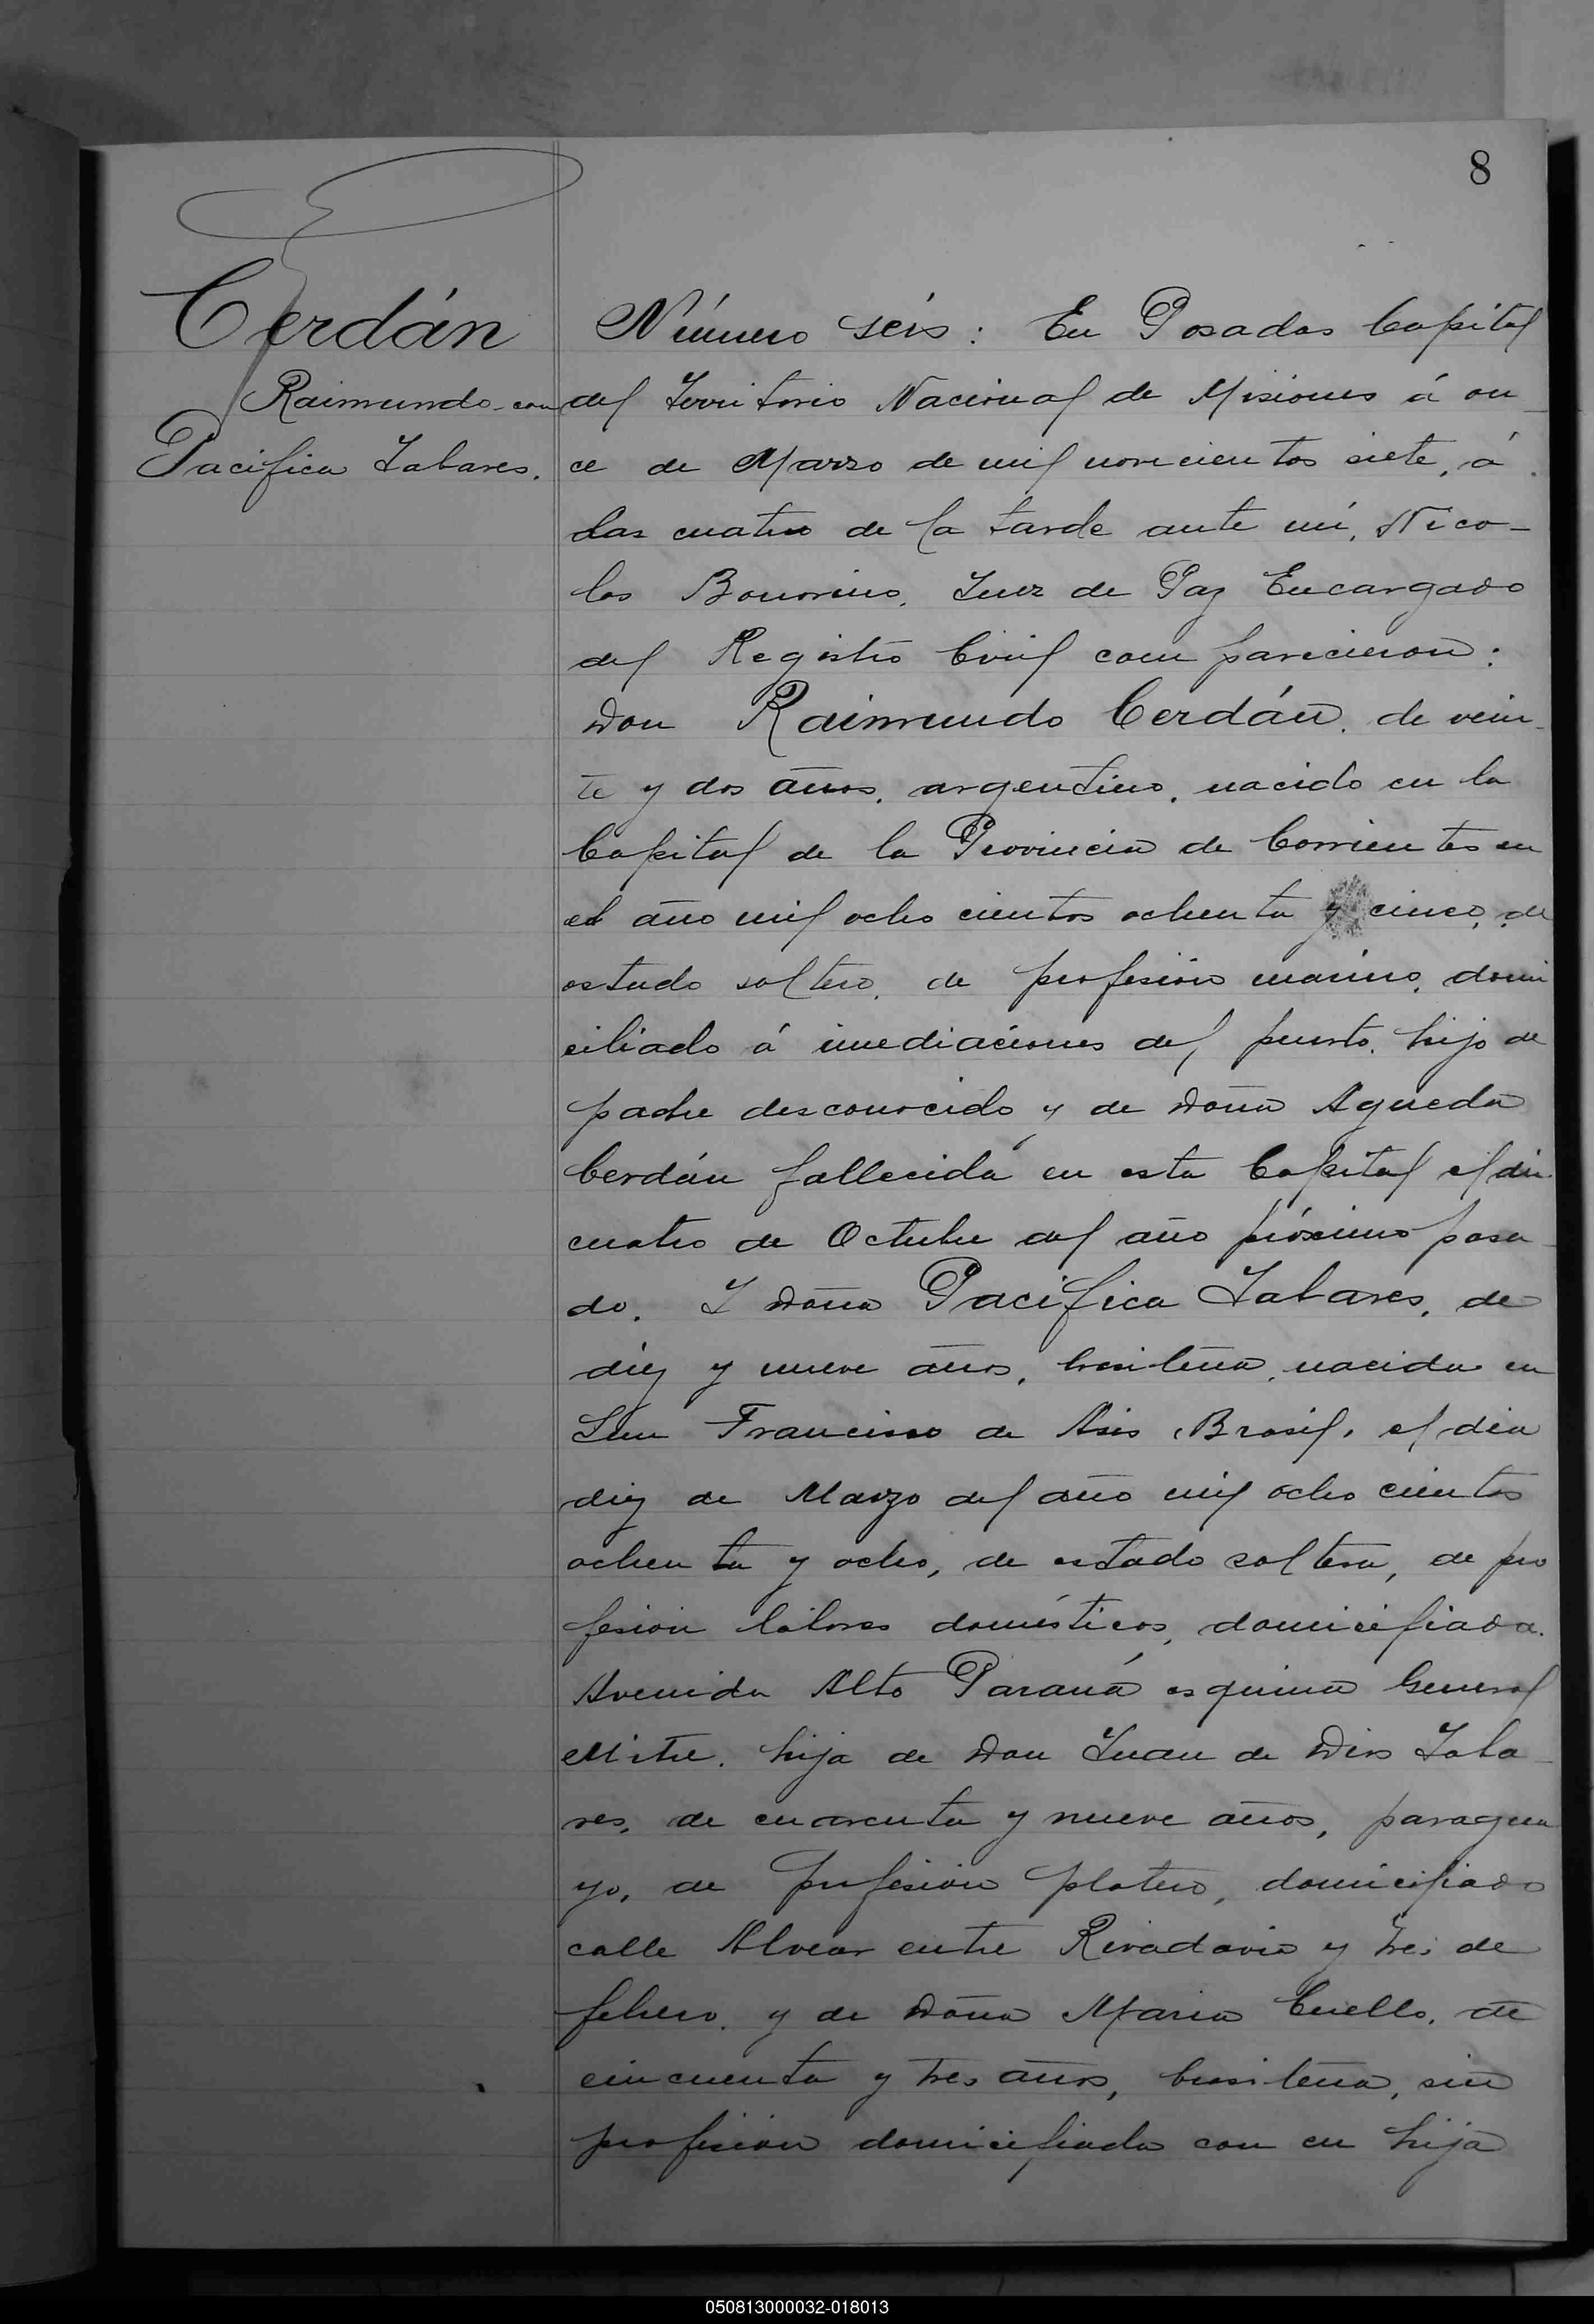 8
Cerdán
Raimundo con
Pacifica Tabares.
Número seis: En Posadas Capital
del Territorio Nacional de Misiones á on-
ce de Marzo de mil novecientos siete, á
las cuatro de la tarde ante mí, Nico-
las Bonorino, Juez de Paz Encargado
del Registro Civil comparecieron:
Don Raimundo Cerdán, de vein-
te y dos años, argentino, nacido en la
Capital de la Provincia de Corrientes en
el año mil ochocientos ochenta y cinco, de
estado soltero, de profesión marino, domi
ciliado á inmediaciones del puerto, hijo de
padre desconocido y de Doña Agueda
Cerdán fallecida en esta Capital el dia
cuatro de Octubre del año próximo pasa-
do. Y Doña Pacifica Tabares, de
diez y nueve años, brasileña, nacida en
San Francisco de Asis, Brasil, el dia
diez de Marzo del año mil ochocientos
ochenta y ocho, de estado soltera, de pro
fesión labores domésticos, domiciliada
Avenida Alto Paraná esquina General
Mitre, hija de Don Juan de Dios Taba-
res, de cuarenta y nueve años, paragua
yo, de profesión platero, domiciliado
calle Alvear entre Rivadavia y tres de
febrero, y de Doña Maria Cuello, de
cincuenta y tres años, brasileña, sin
profesión domiciliada con su hija
050813000032-018013